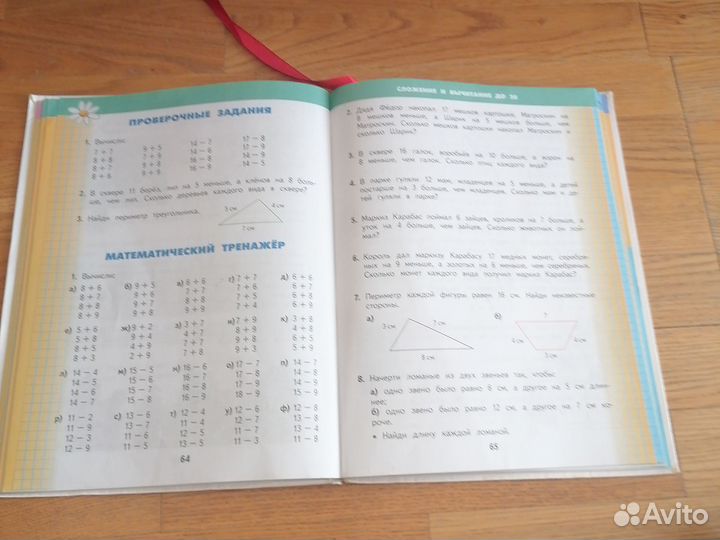 ПРОВЕРОЧНЫЕ ЗАДАНИЯ
1. Вычисли:
7 + 7 9 + 5 14 − 7 17 − 8
8 + 8 14 − 9 17 − 9
14 − 8 14 − 9
8 + 6 14 − 5
2. В сквере 11 берёз, лип на 5 меньше, а клёнов на 8 боль-
ше, чем лип. Сколько деревьев каждого вида в сквере?
3. Найди периметр треугольника.
3 см 4 см
7 см
МАТЕМАТИЧЕСКИЙ ТРЕНАЖЁР
1. Вычисли:
а) 8 + 6 б) 9 + 5 в) 6 + 6 г) 7 + 7 д) 6 + 6
8 + 7 9 + 6 7 + 6 6 + 7
8 + 8 9 + 7 7 + 5 6 + 5
9 + 8 7 + 4 6 + 8
е) 5 + 6 ж) 9 + 2 з) 3 + 7 и) 7 + 9 к) 3 + 8
5 + 8 4 + 7 8 + 9 4 + 8
5 + 4 9 + 4 7 + 7 9 + 3 6 + 9
8 + 3 2 + 9 7 + 8 5 + 9
л) 14 − 4 м) 15 − 5 н) 16 − 6 о) 17 − 7 п) 14 − 7
14 − 5 15 − 6 16 − 7 17 − 8 14 − 8
14 − 6 15 − 7 16 − 8 17 − 9 13 − 8
15 − 8 16 − 9 13 − 9
р) 11 − 2 с) 13 − 6 т) 12 − 4 у) 12 − 6 ф) 12 − 8
11 − 9 13 − 7 11 − 7 13 − 4
12 − 3 11 − 6 12 − 7 11 − 4 11 − 3
12 − 9 11 − 5 13 − 5 11 − 8
64
СЛОЖЕНИЕ И ВЫЧИТАНИЕ ДО 20
2. Дядя Фёдор накопал 17 мешков картошки, Матроскин на
8 мешков меньше, а Шарик на 5 мешков больше, чем
Матроскин. Сколько мешков картошки накопал Матроскин и
сколько Шарик?
3. В сквере 16 галок, воробьёв на 10 больше, а ворон на
8 меньше, чем галок. Сколько птиц каждого вида?
4. В парке гуляли 12 мам, младенцев на 5 меньше, а детей
постарше на 3 больше, чем младенцев. Сколько детей
гуляло в парке?
5. Маркиз Карабас поймал 6 зайцев, кроликов на 7 больше, а
уток на 4 больше, чем зайцев. Сколько животных он пой-
мал?
6. Король дал маркизу Карабасу 17 медных монет, серебря-
ных на 9 меньше, а золотых на 6 меньше, чем серебряных.
Сколько монет каждого вида получил маркиз Карабас?
7. Периметр каждой фигуры равен 16 см. Найди неизвестные
стороны.
а) б)
3 см ? ?
8 см 4 см 4 см
3 см
8. Начерти ломаные из двух звеньев так, чтобы:
а) одно звено было равно 8 см, а другое на 5 см длин-
нее;
б) одно звено было равно 12 см, а другое на 7 см ко-
роче.
• Найди длину каждой ломаной.
65
Avito